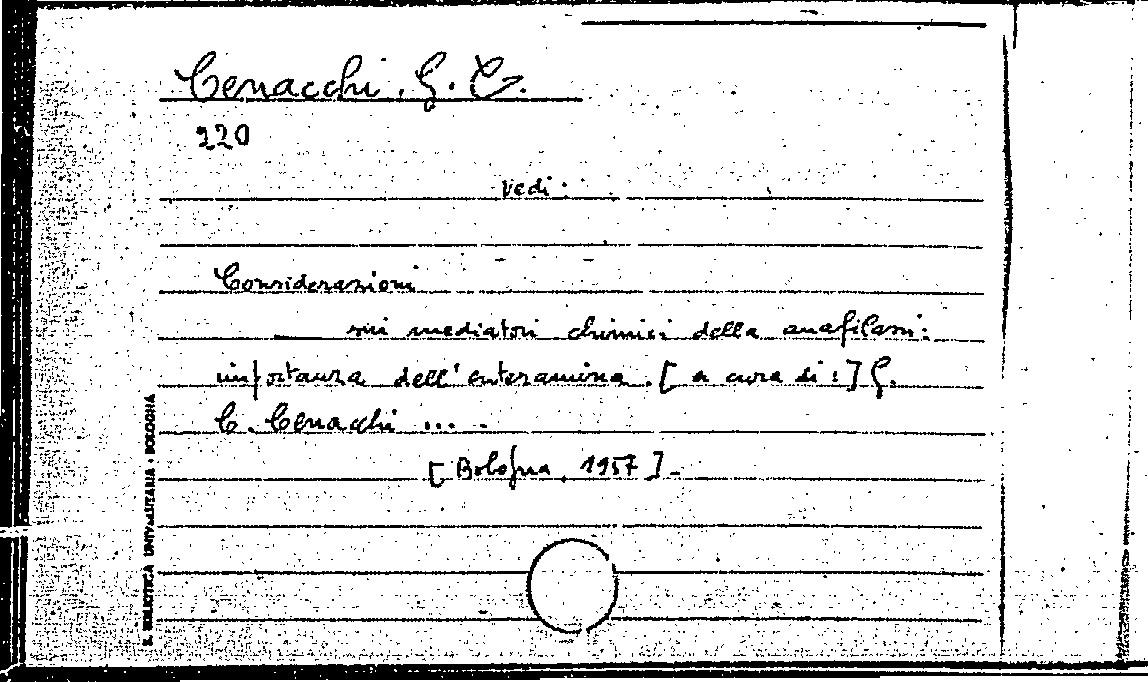 Cenacchi, G. C.
220
vedi:
Considerazioni
sui mediatori chimici della anafilassi:
importanza dell'enteramina. [a cura di:] G.
C. Cenacchi ...
[Bologna, 1957].
R. BIBLIOTECA UNIVERSITARIA - BOLOGNA